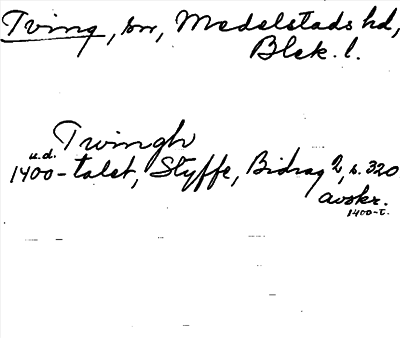 Tving, sn, Medelstads hd,
Blek. l.
Twingh
u.d.
1400-talet, Styffe, Bidrag 2, s. 320
avskr.
1400-t.